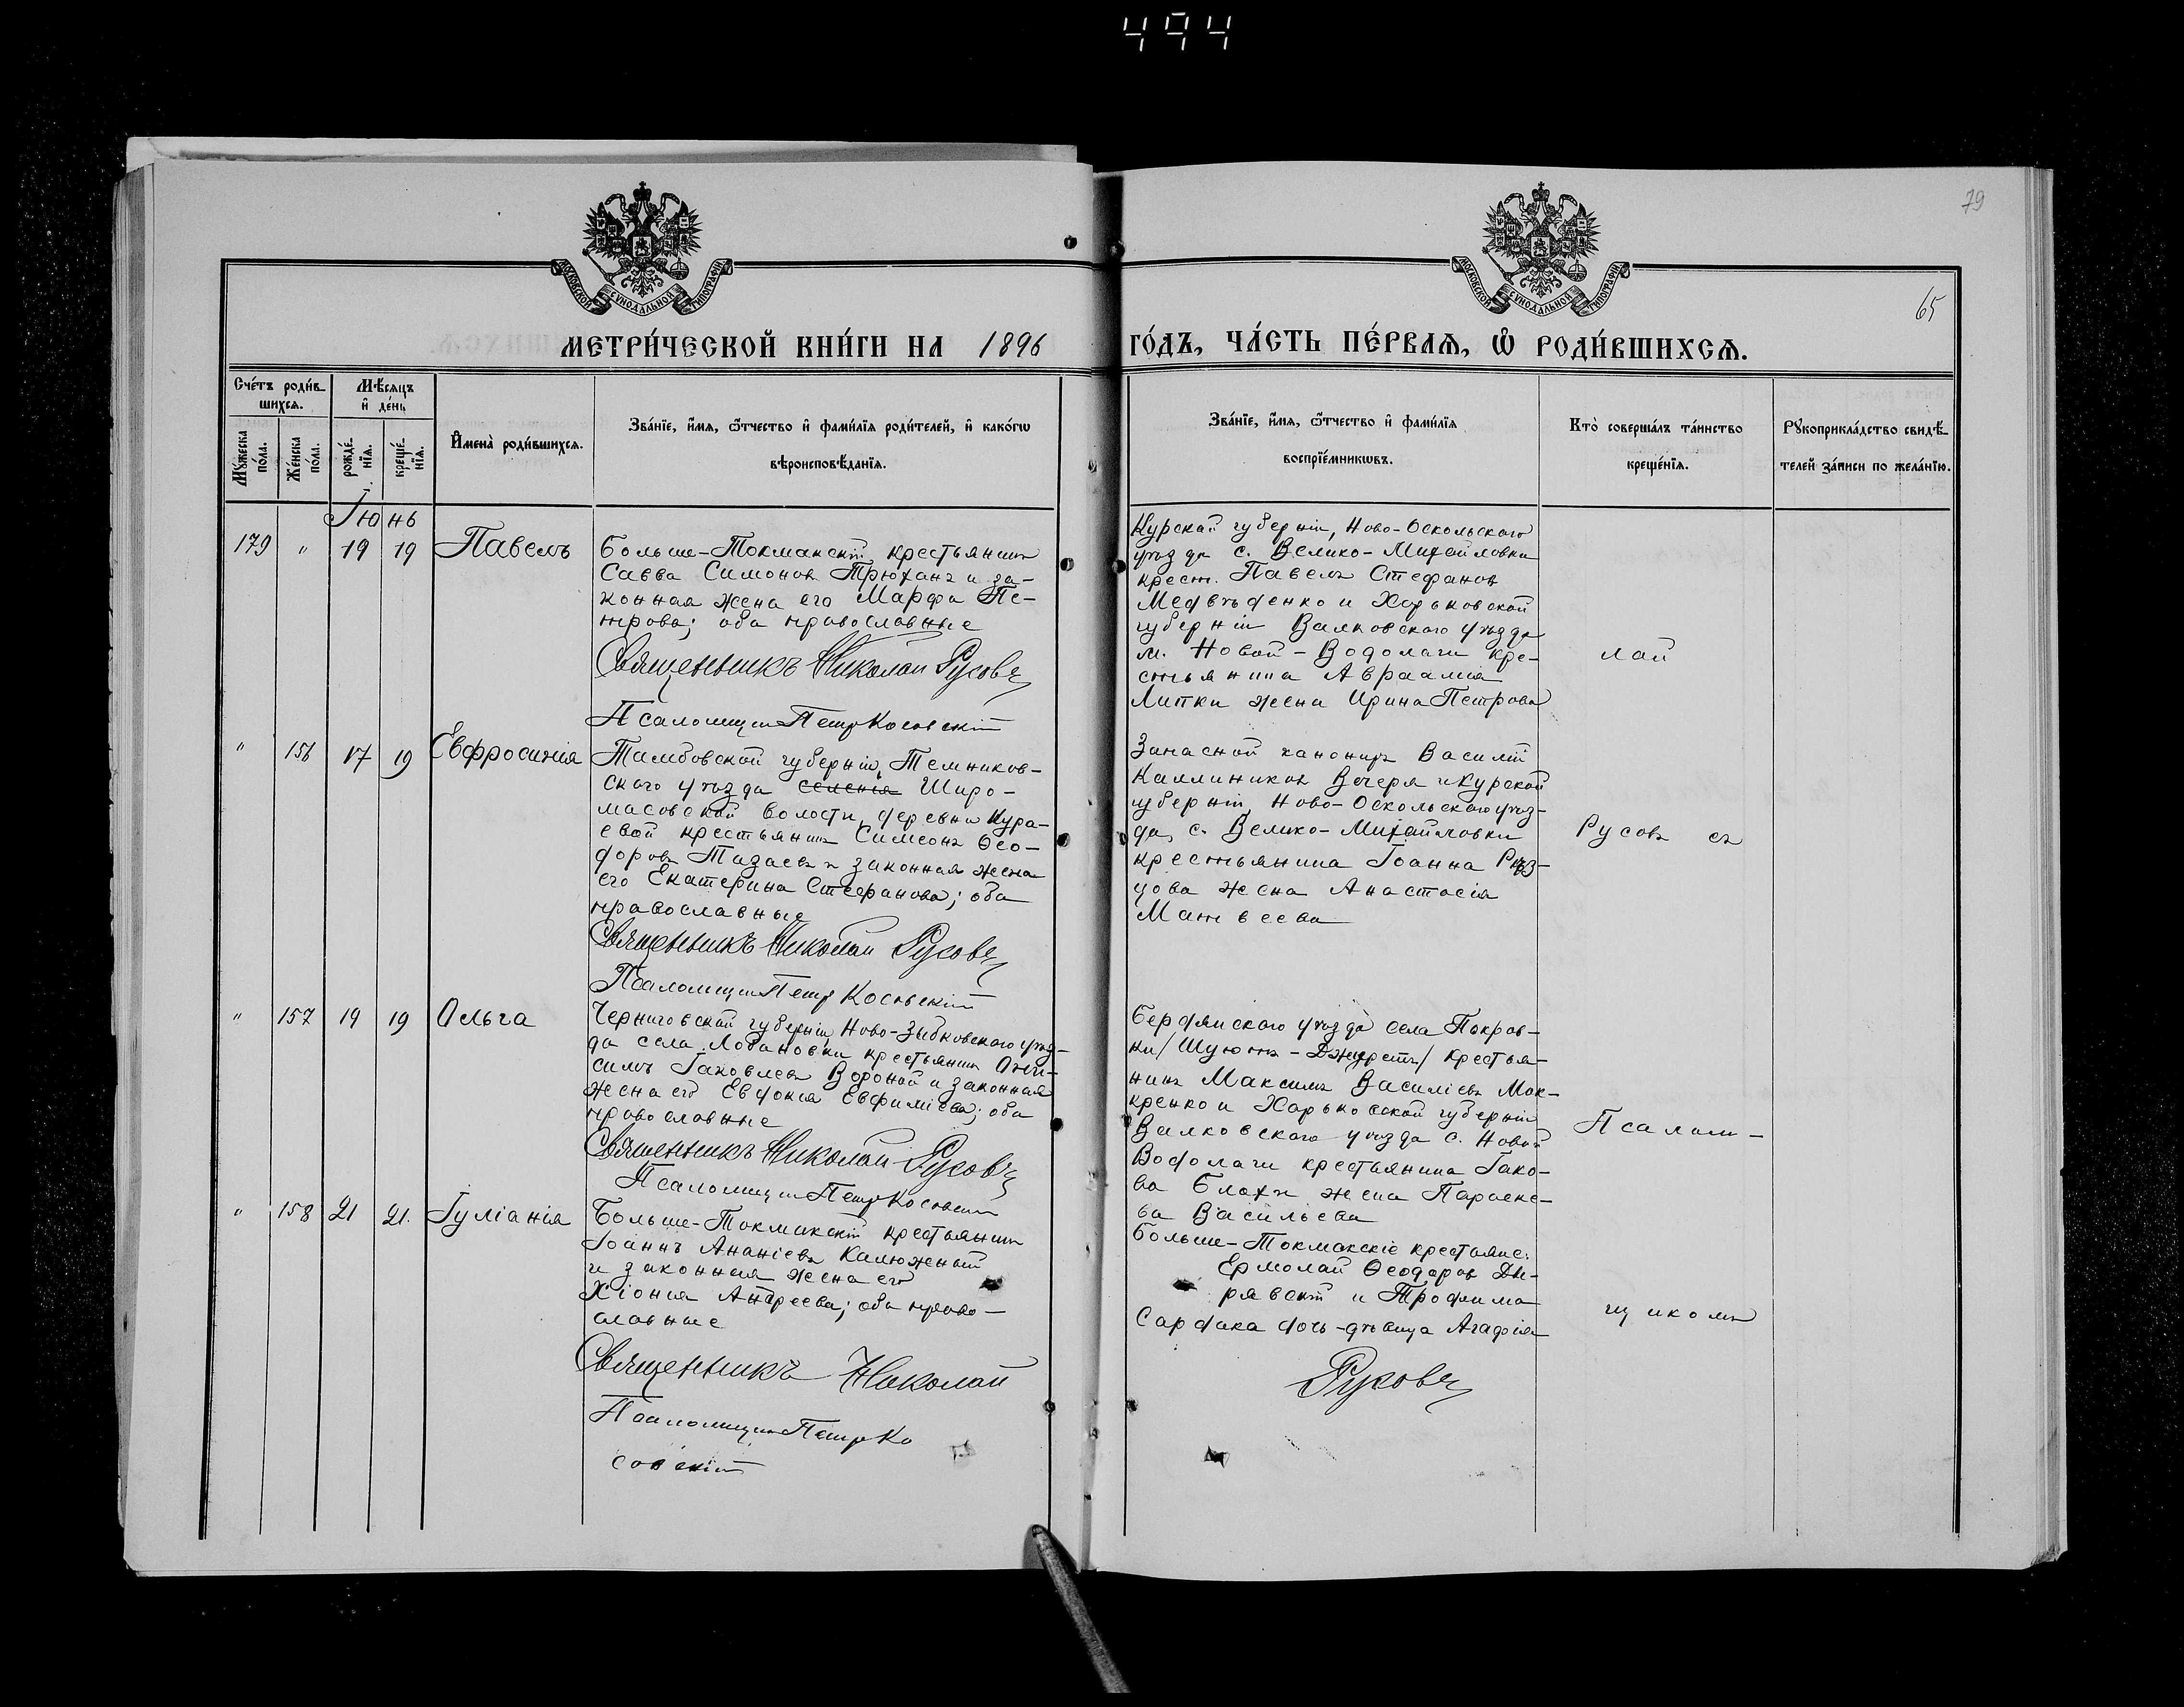 494
79
65
МОСКОВСКОЙ СѴНОДАЛЬНОЙ ТИПОГРАФІИ
МОСКОВСКОЙ СѴНОДАЛЬНОЙ ТИПОГРАФІИ
МЕТРИ́ЧЕСКОЙ КНИ́ГИ НА 1896
ГО́ДЪ, ЧА́СТЬ ПЕ́РВАЯ, Ѡ РОДИ́ВШИХСЯ.
Сче́тъ роди́в-
шихся.
Мѣ́сяцъ
и де́нь
Му́жеска
по́ла.
Же́нска
по́ла.
рожде́-
нія.
креще́-
нія.
Имена̀ роди́вшихся.
Зва́ніе, и́мя, ѻ́тчество и фами́лія роди́телей, и како́гѡ
вѣроисповѣ́данія.
Зва́ніе, и́мя, ѻ́тчество и фами́лія
воспріе́мникѡвъ.
Кто̀ соверша́лъ та́инство
креще́нія.
Рукоприкла́дство свидѣ́-
телей за́писи по жела́нію.
Іюнь
179 " 19 19 Павелъ
Больше-Токмакскій крестьянинъ
Савва Симоновъ Трюханъ и за-
конная жена его Марфа Пе-
трова; оба православные
Священникъ Николай Русовъ
Псаломщикъ Петръ Косовскій
Курской губерніи, Ново-Оскольскаго
уѣзда с. Велико-Михайловки
крест. Павелъ Стефановъ
Медвѣденко и Харьковской
губерніи Валковскаго уѣзда
м. Новой-Водолаги кре-
стьянина Авраамія
Липки жена Ирина Петрова
лай
" 156 17 19 Евфросинія
Тамбовской губерніи, Темников-
скаго уѣзда селенія Широ-
масовской волости, деревни Кура-
евой крестьянинъ Симеонъ Ѳео-
доровъ Тазаевъ и законная жена
его Екатерина Стефанова; оба
православные
Священникъ Николай Русовъ
Псаломщикъ Петръ Косовскій
Запасной канониръ Василій
Каллиниковъ Вечеря и Курской
губерніи, Ново-Оскольскаго уѣз-
да, с. Велико-Михайловки
крестьянина Іоанна Рѣз-
цова жена Анастасія
Матвеева
Русовъ съ
" 157 19 19 Ольга
Черниговской губерніи, Ново-Зыбковскаго уѣз-
да села Лобановки крестьянинъ Они-
симъ Іаковлевъ Вороной и законная
жена его Евдокія Евфиміева; оба
православные
Священникъ Николай Русовъ
Псаломщикъ Петръ Косовскій
Бердянскаго уѣзда села Покров-
ки /Шуютъ-Джуретъ/ крестья-
нинъ Максимъ Василіевъ Мок-
кренко и Харьковской губерніи
Валковскаго уѣзда с. Новой
Водолаги крестьянина Іако-
ва Блохи жена Параске-
ва Васильева
Псалом-
" 158 21 21. Іуліанія
Больше-Токмакскій крестьянинъ
Іоаннъ Ананіевъ Калюжный
и законная жена его
Хіонія Андреева; оба право-
славные
Священникъ Николай
Русовъ
Псаломщикъ Петръ Ко
совскій
Больше-Токмакскіе крестьяне:
Ермолай Ѳеодоровъ Ды-
рявскій и Трофима
Сардака дочь-дѣвица Агафія
щикомъ